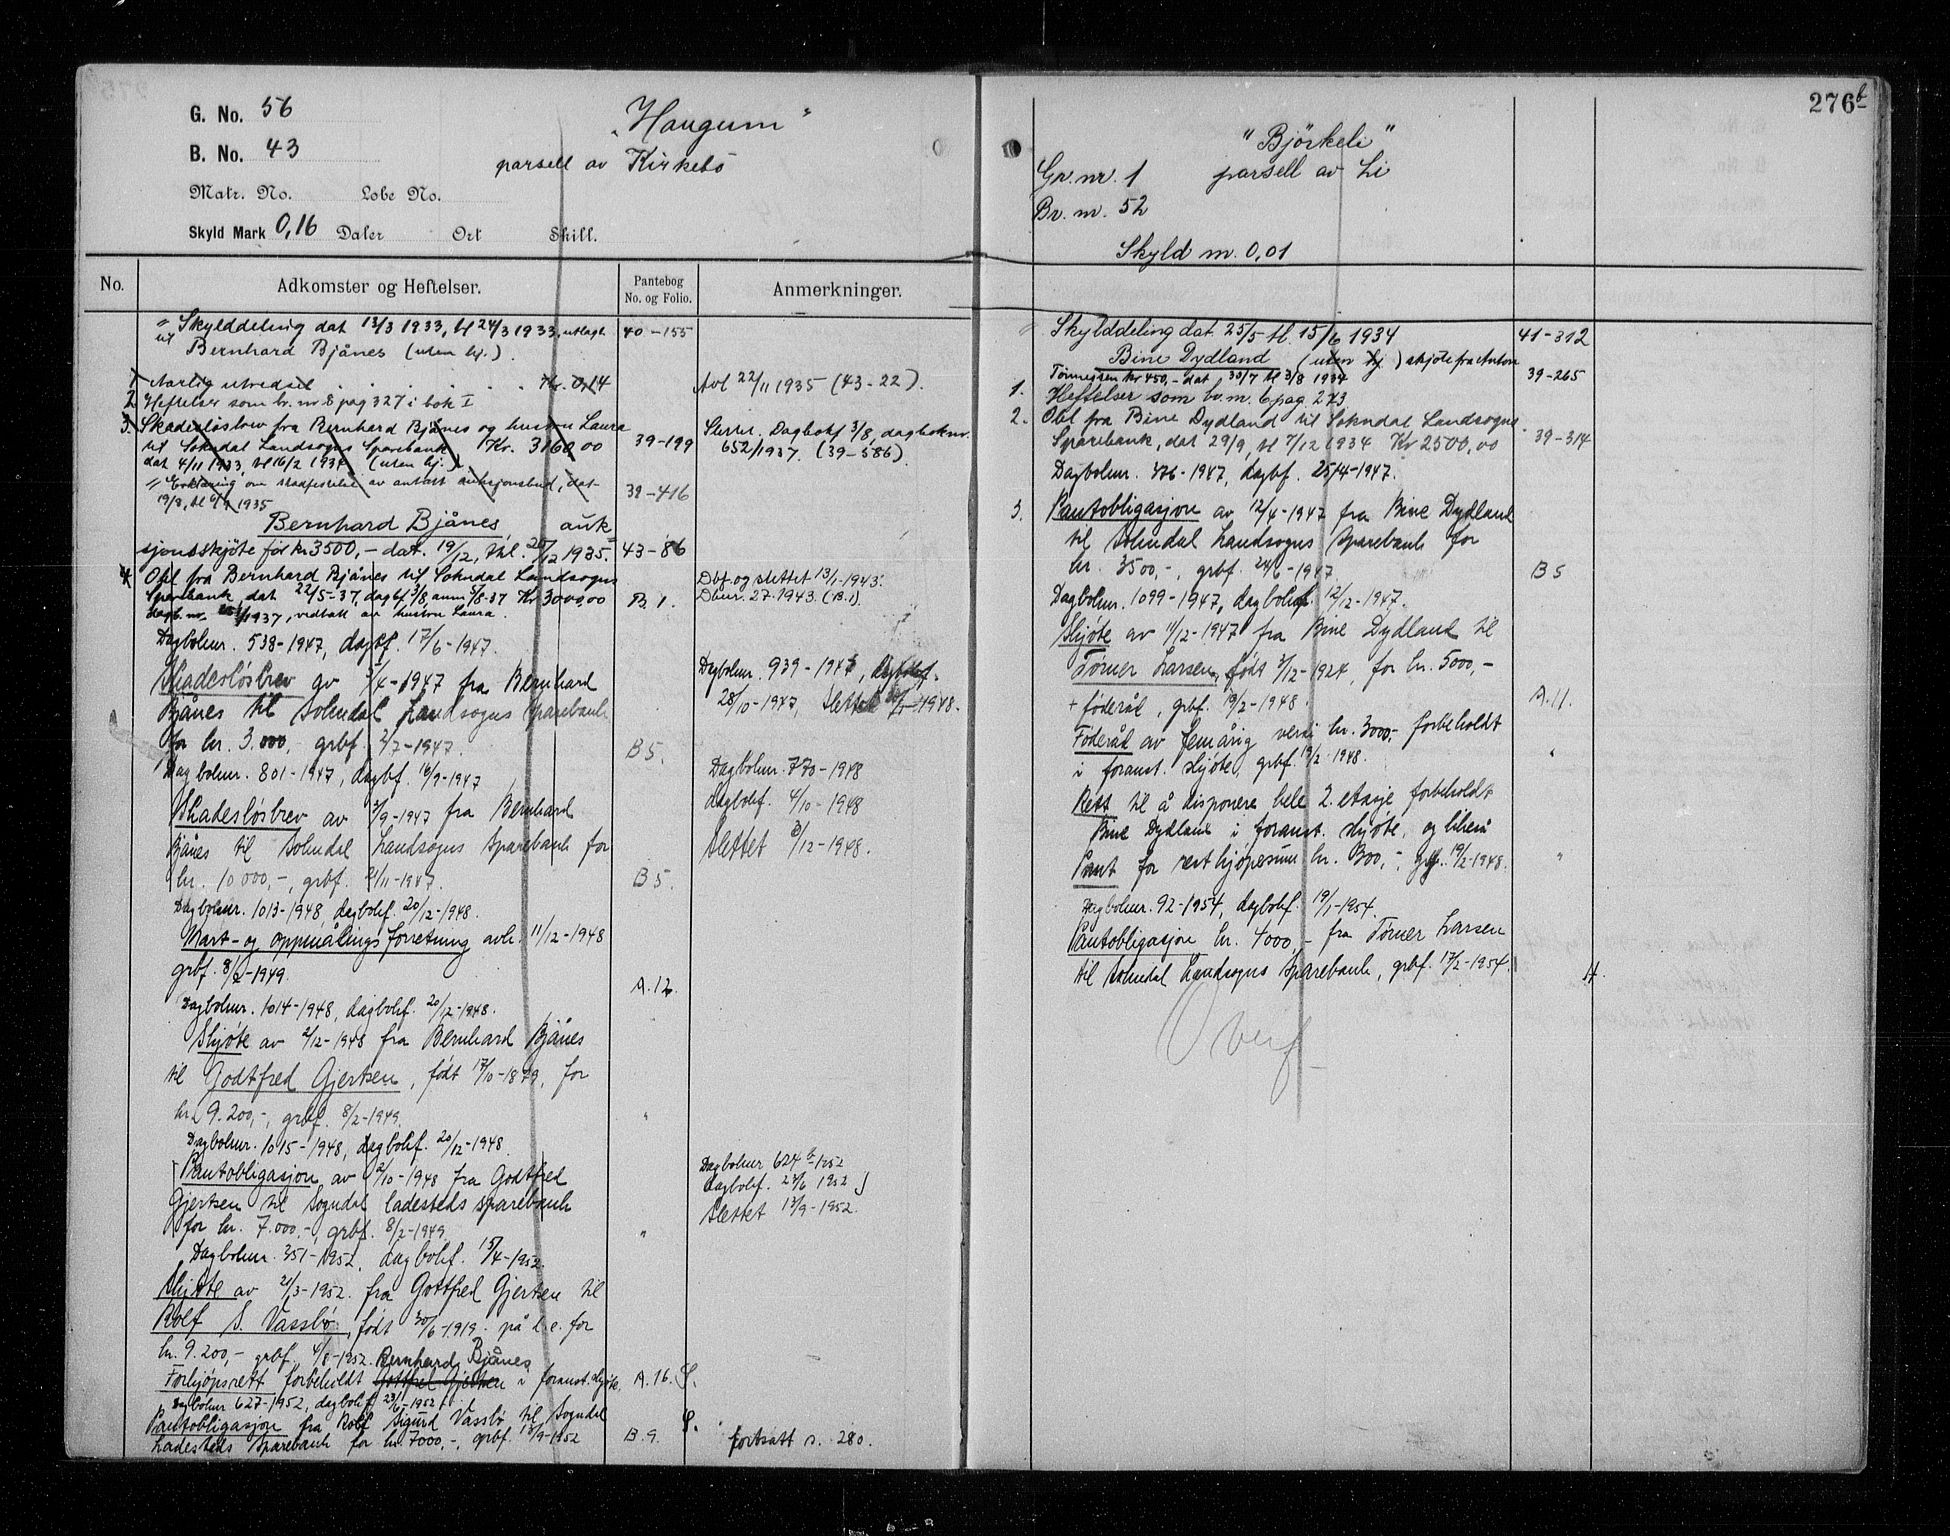 G. No. 56
B. No. 43
Matr. No. Lobe No.
Skyld Mark 0,16 Daler Ort Skill.
"Haugum"
parsell av Kirkebö
No.
Adkomster og Heftelser.
Pantebog No. og Folio.
Anmerkninger.
" Skylddeling dat 13/3 1933, tl 24/3 1933, utlagt 40-155
til Bernhard Bjånes (uten hj.).
1 Aarlig utredsel . . . . . . Kr. 0,14 Avl 22/11 1935 (43-22).
2 Heftelser som br. nr. 8 pag 327 i bok I
3. Skadesløsbrev fra Bernhard Bjånes og hustru Laura
til Sokndal Landsogns Sparebank Kr. 3160,00 39-199 Dagbokf 3/8, dagboknr.
dat 4/11 1933, tl 16/2 1934 (uten hj.) 652/1937. (39-586)
" Erklæring om stadfestelse av antatt auksjonsbud, dat 39-416
19/8, tl 6/9 1935
Bernhard Bjånes, auk
sjonsskjøte for kr. 3500,- dat. 19/12, tkl. 20/12 1935. 43-86
4. Obl fra Bernhard Bjånes til Sokndal Landsogns Dbf. og slettet 13/1-1943.
Sparebank dat 22/5-37, dagbf 3/8, anm 5/8-37 Kr 3000,00 B 1. Dbnr. 27-1943. (B.1).
dagb. nr. /1937, vedtatt av hustru Laura.
Dagboknr. 538-1947, dagbf. 17/6-1947.
Skadesløsbrev av /4-1947 fra Bernhard Dagboknr. 939-1947, dagbokf.
Bjånes til Sokndal Landsogns Sparebank 28/10-1947, Slettet 1948.
for kr. 3.000,- grbf. 2/7-1947. B 5.
Dagboknr. 801-1947, dagbf. 16/9-1947 Dagboknr. 770-1948
Skadesløsbrev av /9-1947 fra Bernhard dagbokf. 4/10-1948
Bjånes til Sokndal Landsogns Sparebank for Slettet /12-1948.
kr. 10 000,-, grbf. /11-1947. B 5.
Dagboknr. 1013-1948, dagbokf. 20/12-1948.
Kart- og oppmålingsforretning avh. 11/12-1948
grbf. 8/2-1949. A.12.
Dagboknr. 1014-1948, dagbokf. 20/12-1948.
Skjøte av 2/12-1948 fra Bernhard Bjånes
til Godtfred Gjertsen, født 17/10-1879, for
kr. 9.200,-, grbf. 8/2-1949. "
Dagboknr. 1015-1948, dagbokf. 20/12-1948.
Pantobligasjon av 2/10-1948 fra Godtfred Dagboknr 624 b-1952
Gjertsen til Sogndal ladesteds sparebank dagbokf. 23/6 1952
for kr. 7.000,-, grbf. 8/2-1949. " Slettet 13/9-1952.
Dagboknr. 351-1952, dagbokf. 15/4-1952.
Skjøte av 21/3-1952 fra Gottfred Gjertsen til
Rolf S. Vassbø, født 30/6-1919. på l.e. for
kr. 9.200,- grbf. 4/8-1952. Bernhard Bjånes
Forkjøpsrett forbeholdt Gottfred Gjertsen i foranst. skjøte. A.16. S.
Dagboknr 627-1952, dagbokf. 23/6-1952.
Pantobligasjon fra Rolf Sigurd Vassbø til Sogndal S.
Ladesteds Sparebank for kr. 7000,-, grbf. 13/9-1952 B.9. fortsatt s. 280.
276b
"Björkeli"
Gr. nr. 1 parsell av Li
Br. nr. 52
Skyld m. 0,01
" Skylddeling dat 25/5 tl. 15/6 1934 41-312
Bine Dydland (uten hj.) skjøte fra Anton
Tønnessen kr 450,- dat, 30/7 tl 3/8 1934 39-265
1. Heftelser som br. nr. 6 pag 273
2. Obl fra Bine Dydland til Sokndal Landsogns
Sparebank, dat 29/9, tl 7/12 1934 Kr 2500,00 39-314
Dagboknr. 376-1947, dagbf. 25/4-1947.
3. Pantobligasjon av 12/4-1947 fra Bine Dydland
til Sokndal Landsogns Sparebank for
kr. 3500,-, grbf. 24/6-1947. B 5
Dagboknr. 1099-1947, dagbokf. 12/12-1947.
Skjøte av 11/12-1947 fra Bine Dydland til
Tørner Larsen, født /12-1924, for kr. 5000,-
+ føderåd, grbf. 19/2-1948. A.11.
Føderåd av femårig verdi kr. 3000,- forbeholdt
i foranst. skjøte, grbf. 19/2-1948. "
Rett til å disponere hele 2. etasje forbeholdt
Bine Dydland i foranst. skjøte, og likeså
Pant for restkjøpesum kr. 800,-, grbf. 19/2-1948. "
Dagboknr. 92-1954, dagbokf. 19/1-1954.
Pantobligasjon kr. 4000,- fra Tørner Larsen
til Sokndal Landsogns Sparebank, grbf. 17/2-1954.
Overf.